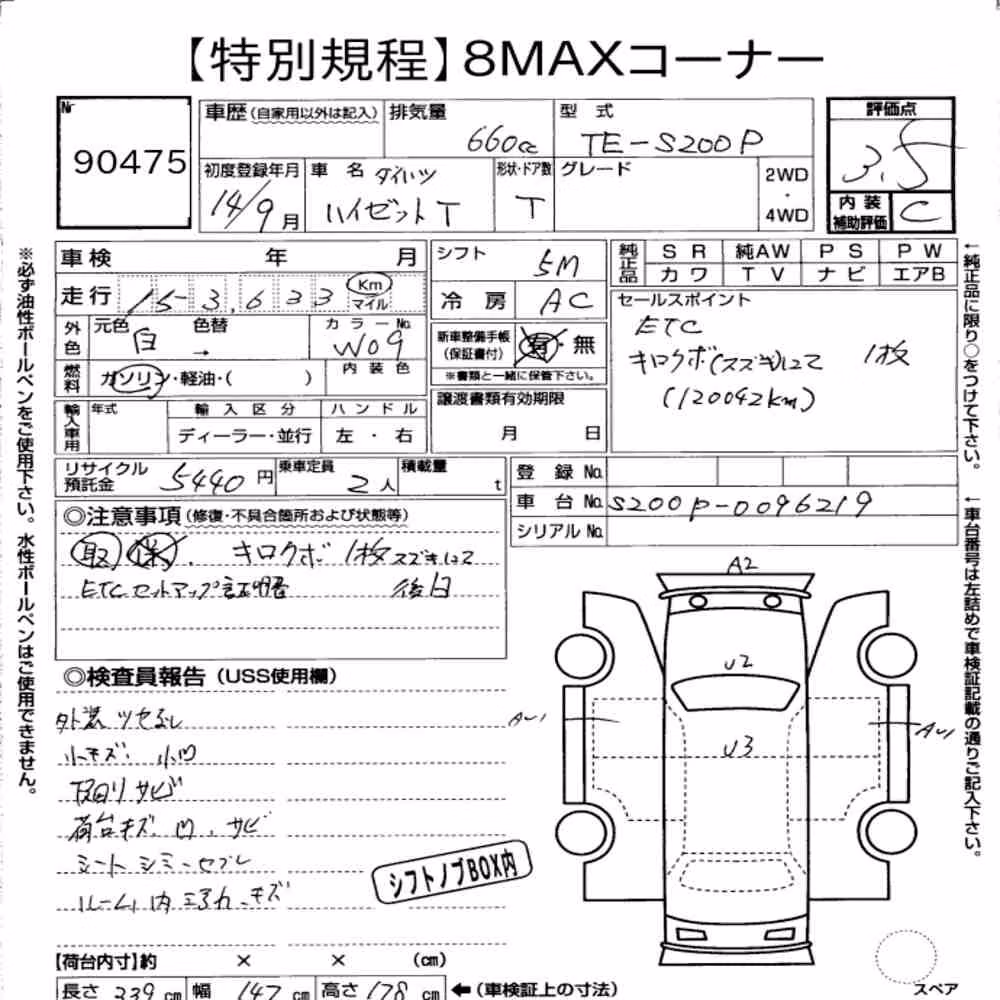 【特別規程】8MAXコーナー
Nr 90475
車歴(自家用以外は記入) 排気量 660cc
型式 TE-S200P
評価点 3.5
内装補助評価 C
初度登録年月 14/9月
車名 ダイハツ ハイゼットT
形状・ドア数 T
グレード
2WD・4WD
車検 年 月
走行 15-3,633 Km マイル
外色 元色 白 色替 →
カラーNo. W09
燃料 ガソリン・軽油・( )
内装色
輸入車用 年式 輸入区分 ハンドル
ディーラー・並行 左・右
シフト 5M
冷房 AC
新車整備手帳(保証書付) 有・無
※書類と一緒に保管下さい。
譲渡書類有効期限
月 日
純正品 SR 純AW PS PW
カワ TV ナビ エアB
セールスポイント
ETC
キロクボ(スズキ)にて 1枚
(120042km)
リサイクル預託金 5440円
乗車定員 2人
積載量 t
登録No.
車台No. S200P-0096219
シリアルNo.
◎注意事項(修復・不具合箇所および状態等)
取 保 . キロクボ 1枚 スズキにて
ETCセットアップ証明書 後日
◎検査員報告(USS使用欄)
外装ツヤなし
小キズ. 小凹
下回りサビ
荷台キズ. 凹. サビ
シート シミー
ルーム内 キズ
シフトノブBOX内
A2
U2
U3
AU1
AU1
【荷台内寸】約 × × (cm)
長さ 339cm 幅 147cm 高さ 178cm ←(車検証上の寸法)
スペア
※必ず油性ボールペンをご使用下さい。水性ボールペンはご使用できません。
←純正品に限り○をつけて下さい。
←車台番号は左詰めで車検証記載の通りご記入下さい。